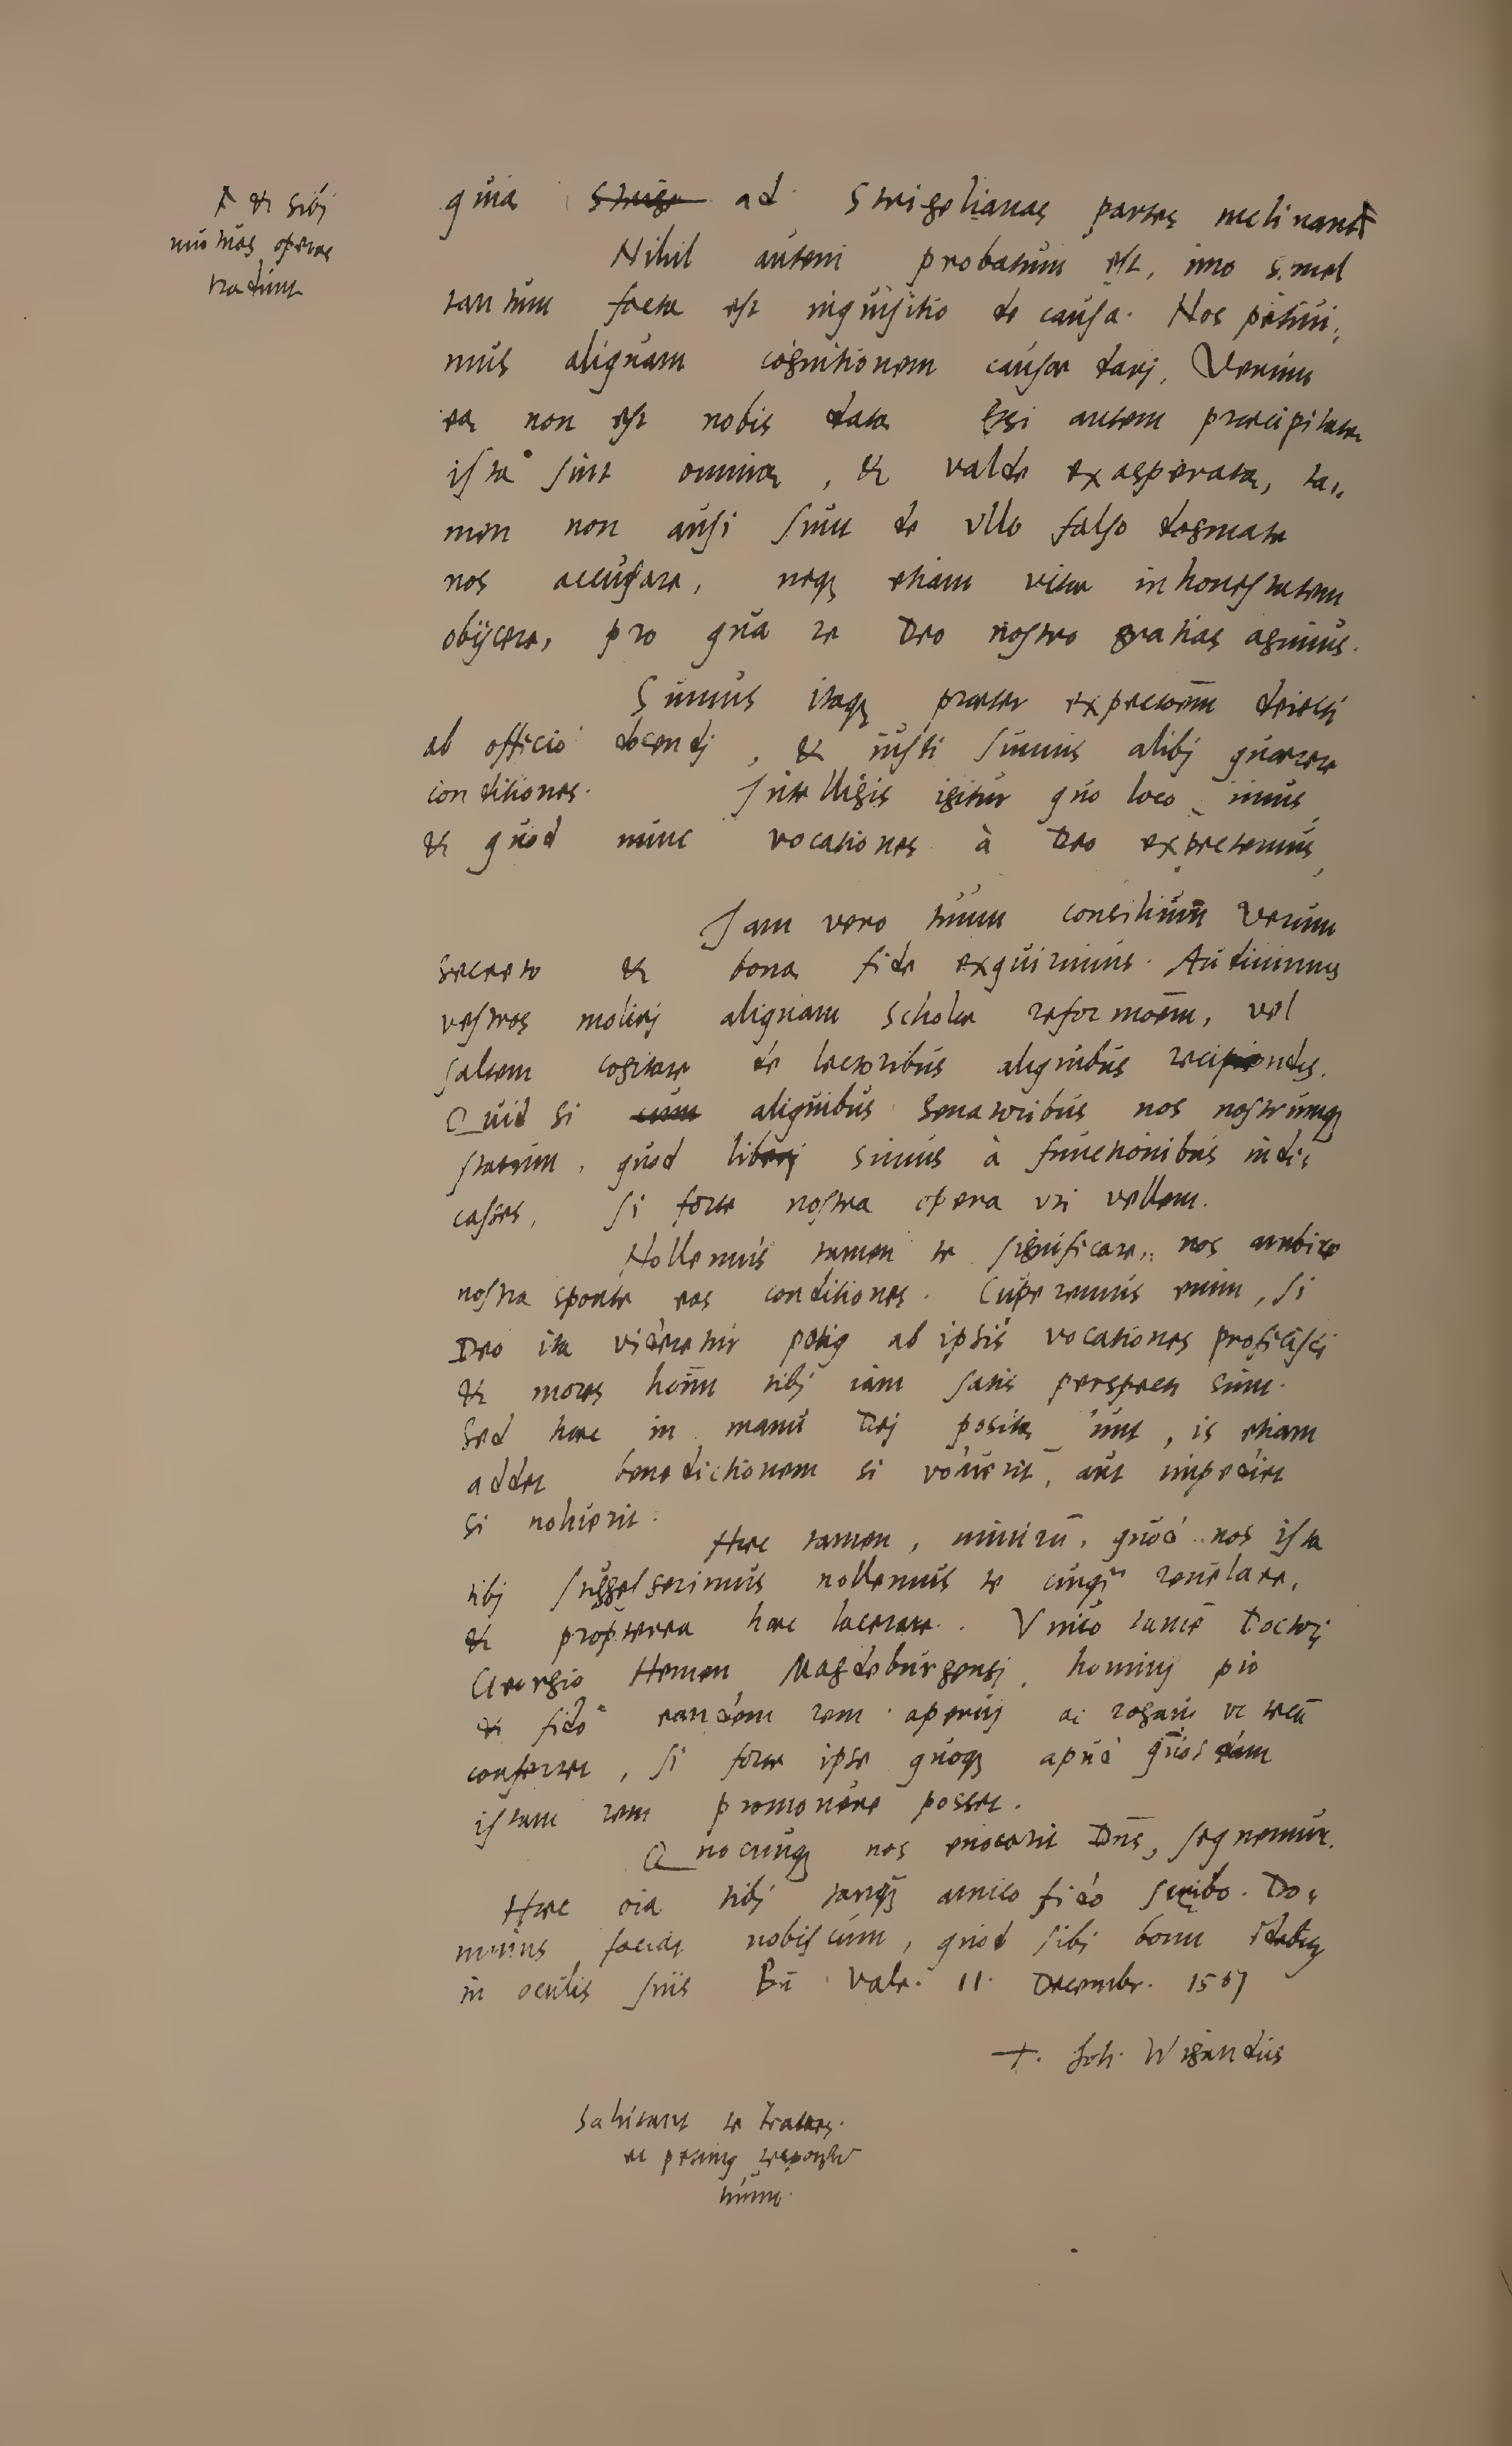 † et sibj
mutuas operas
tradunt
quia Strige ad Strigelianas partes inclinant †
Nihil autem probatum est, imo semel
tantum facta est inquisitio de causa. Nos petiui,
mus aliquam cognitionem causae darj, Verum
ea non est nobis data Etsi autem praecipitata
ista sint omnia, et valde exasperata, ta,,
men non ausi sunt de vllo falso dogmate
nos accusare, neqꝫ etiam vitae inhonestatem
obijcere, pro qua re Deo nostro gratias agimus.
Sumus itaqꝫ praeter expectoēm deiecti
ab officio docendj, et iussi sumus alibj quaerere
conditiones. Intelligis igitur quo loco simus,
et quod nunc vocationes à Deo expectemus,
Jam vero tuum consilium verum
secreto et bona fide exquirimus. Audiuimus
vestros molirj aliquam scholae reformoēm, vel
saltem cogitare de lectoribus aliquibus recipiendis.
Quid si cum aliquibus Senatoribus nos nostrumqꝫ
statum, quod liberj simus à functionibus indi,
casses, si forte nostra opera vti vellent.
Nollemus tamen te significare,, nos ambire
nostra sponte eas conditiones. Cuperemus enim, si
Deo ita videretur potiꝰ ab ipsis vocationes proficisci
et mores hoīm tibj iam satis perspecti sunt.
Sed haec in manu Dej posita sunt, is etiam
addet benedictionem si voluerit, aut impediet
si noluerit.
Haec tamen, nimirū, quod nos ista
tibj suggesserimus nollemus te cuiqꝫ reuelare,
et propterea haec lacerare. Vnico tamē Doctorj
Georgio Hemen Magdeburgensj, hominj pio
et fido eandem rem aperuj ac rogaui vt tecū
conferret, si forte ipse quoqꝫ apud quosdam
istam rem promouere posset.
Quocunqꝫ nos euocarit Dn̄s, sequemur.
Haec oīa tibj tanqꝫ amico fido scribo. Do,
minus faciat nobiscum, quod sibj bonum videbitꝫ
in oculis suis Bn̄ Vale. 11. Decembr. 1567
†. Joh. Wigandus
Salutant te fratres.
et petimꝰ responsū
tuum.